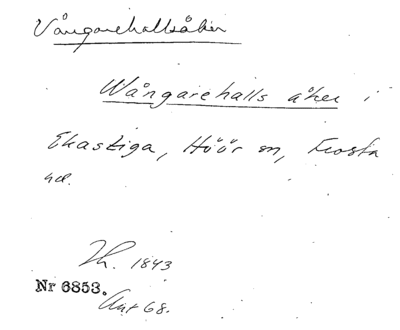 Vångarehallsåker
Wångarehalls åker i
Ekastiga, Höör sn, Frosta
hd.
Th. 1843
Nr 6853.
Ant 68.